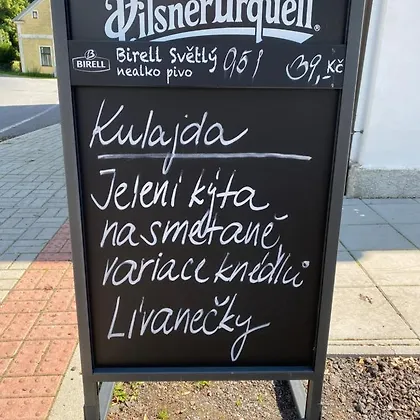 PilsnerUrquell®
B
BIRELL
Birell Světlý 0,5 l 39,- Kč
nealko pivo
Kulajda
Jelení kýta
na smetaně,
variace knedlíů
Livanečky